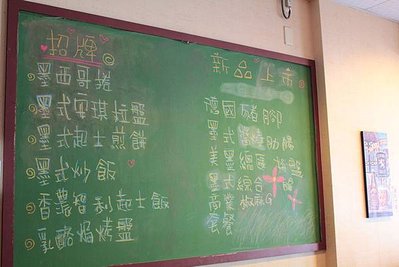 招牌
墨西哥捲
墨式安琪拉盤
墨式起士煎餅
墨式炒飯
香濃智利起士飯
乳酪焗烤盤
新品上市
德國豬腳
墨式
美墨總匯
墨式綜合
套餐